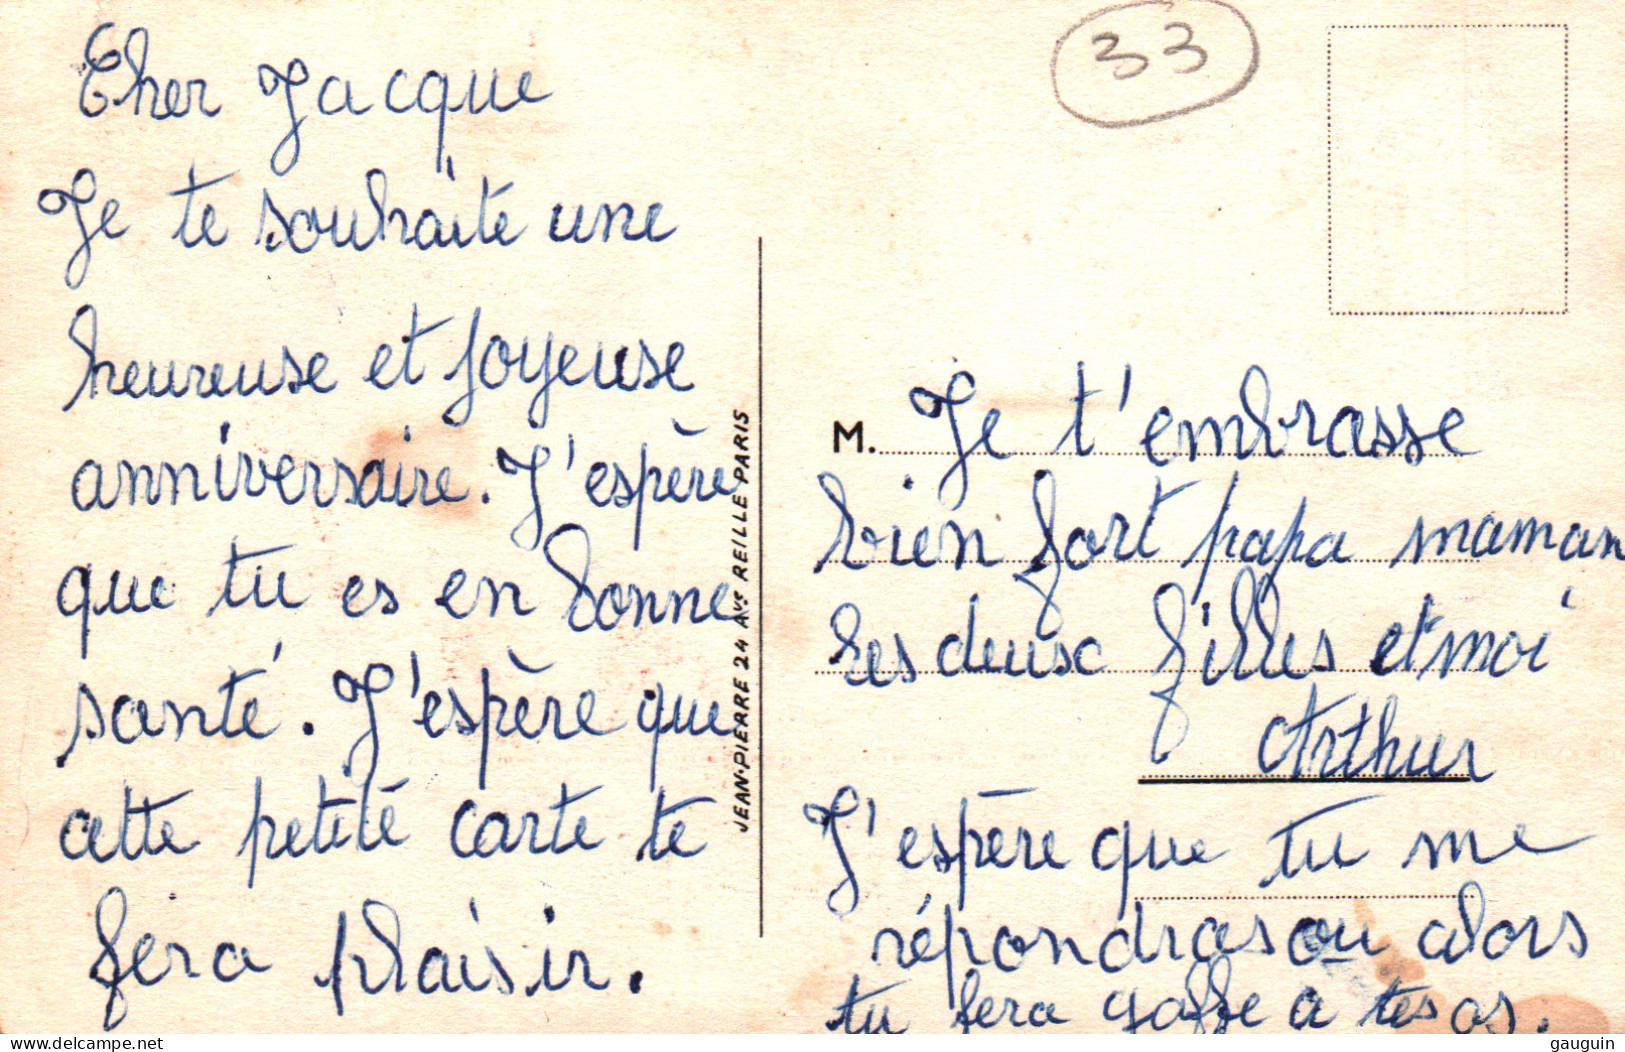 33
Cher Jacque
Je te souhaite une
heureuse et joyeuse
anniversaire. J'espère
que tu es en bonne
santé. J'espère que
cette petite carte te
fera plaisir.
JEAN-PIERRE 24 AVE REILLE PARIS
M. Je t'embrasse
bien fort papa maman
les deux filles et moi
Arthur
J'espère que tu me
répondras ou alors
tu fera gaffe a tes os.
gauguin